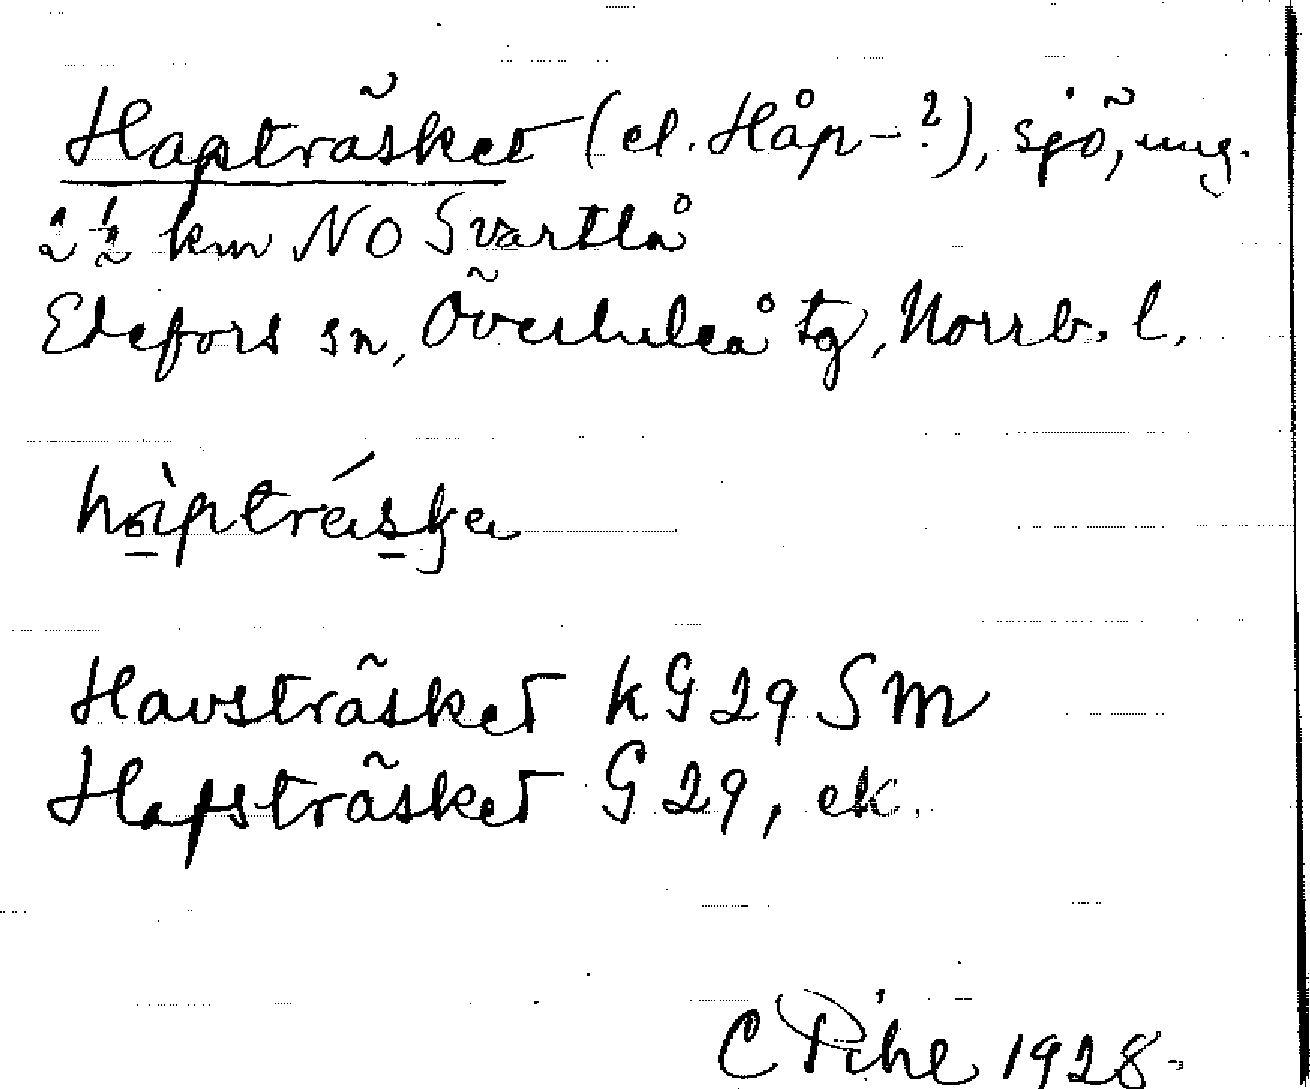 Hapträsket (el. Håp-?), sjö, ung.
2 ½ km NO Svartlå
Edefors sn, Överluleå tg, Norrb. l.
Havsträsket kG 29 SM
Hafsträsket G 29, ek.
C Pihl 1928.